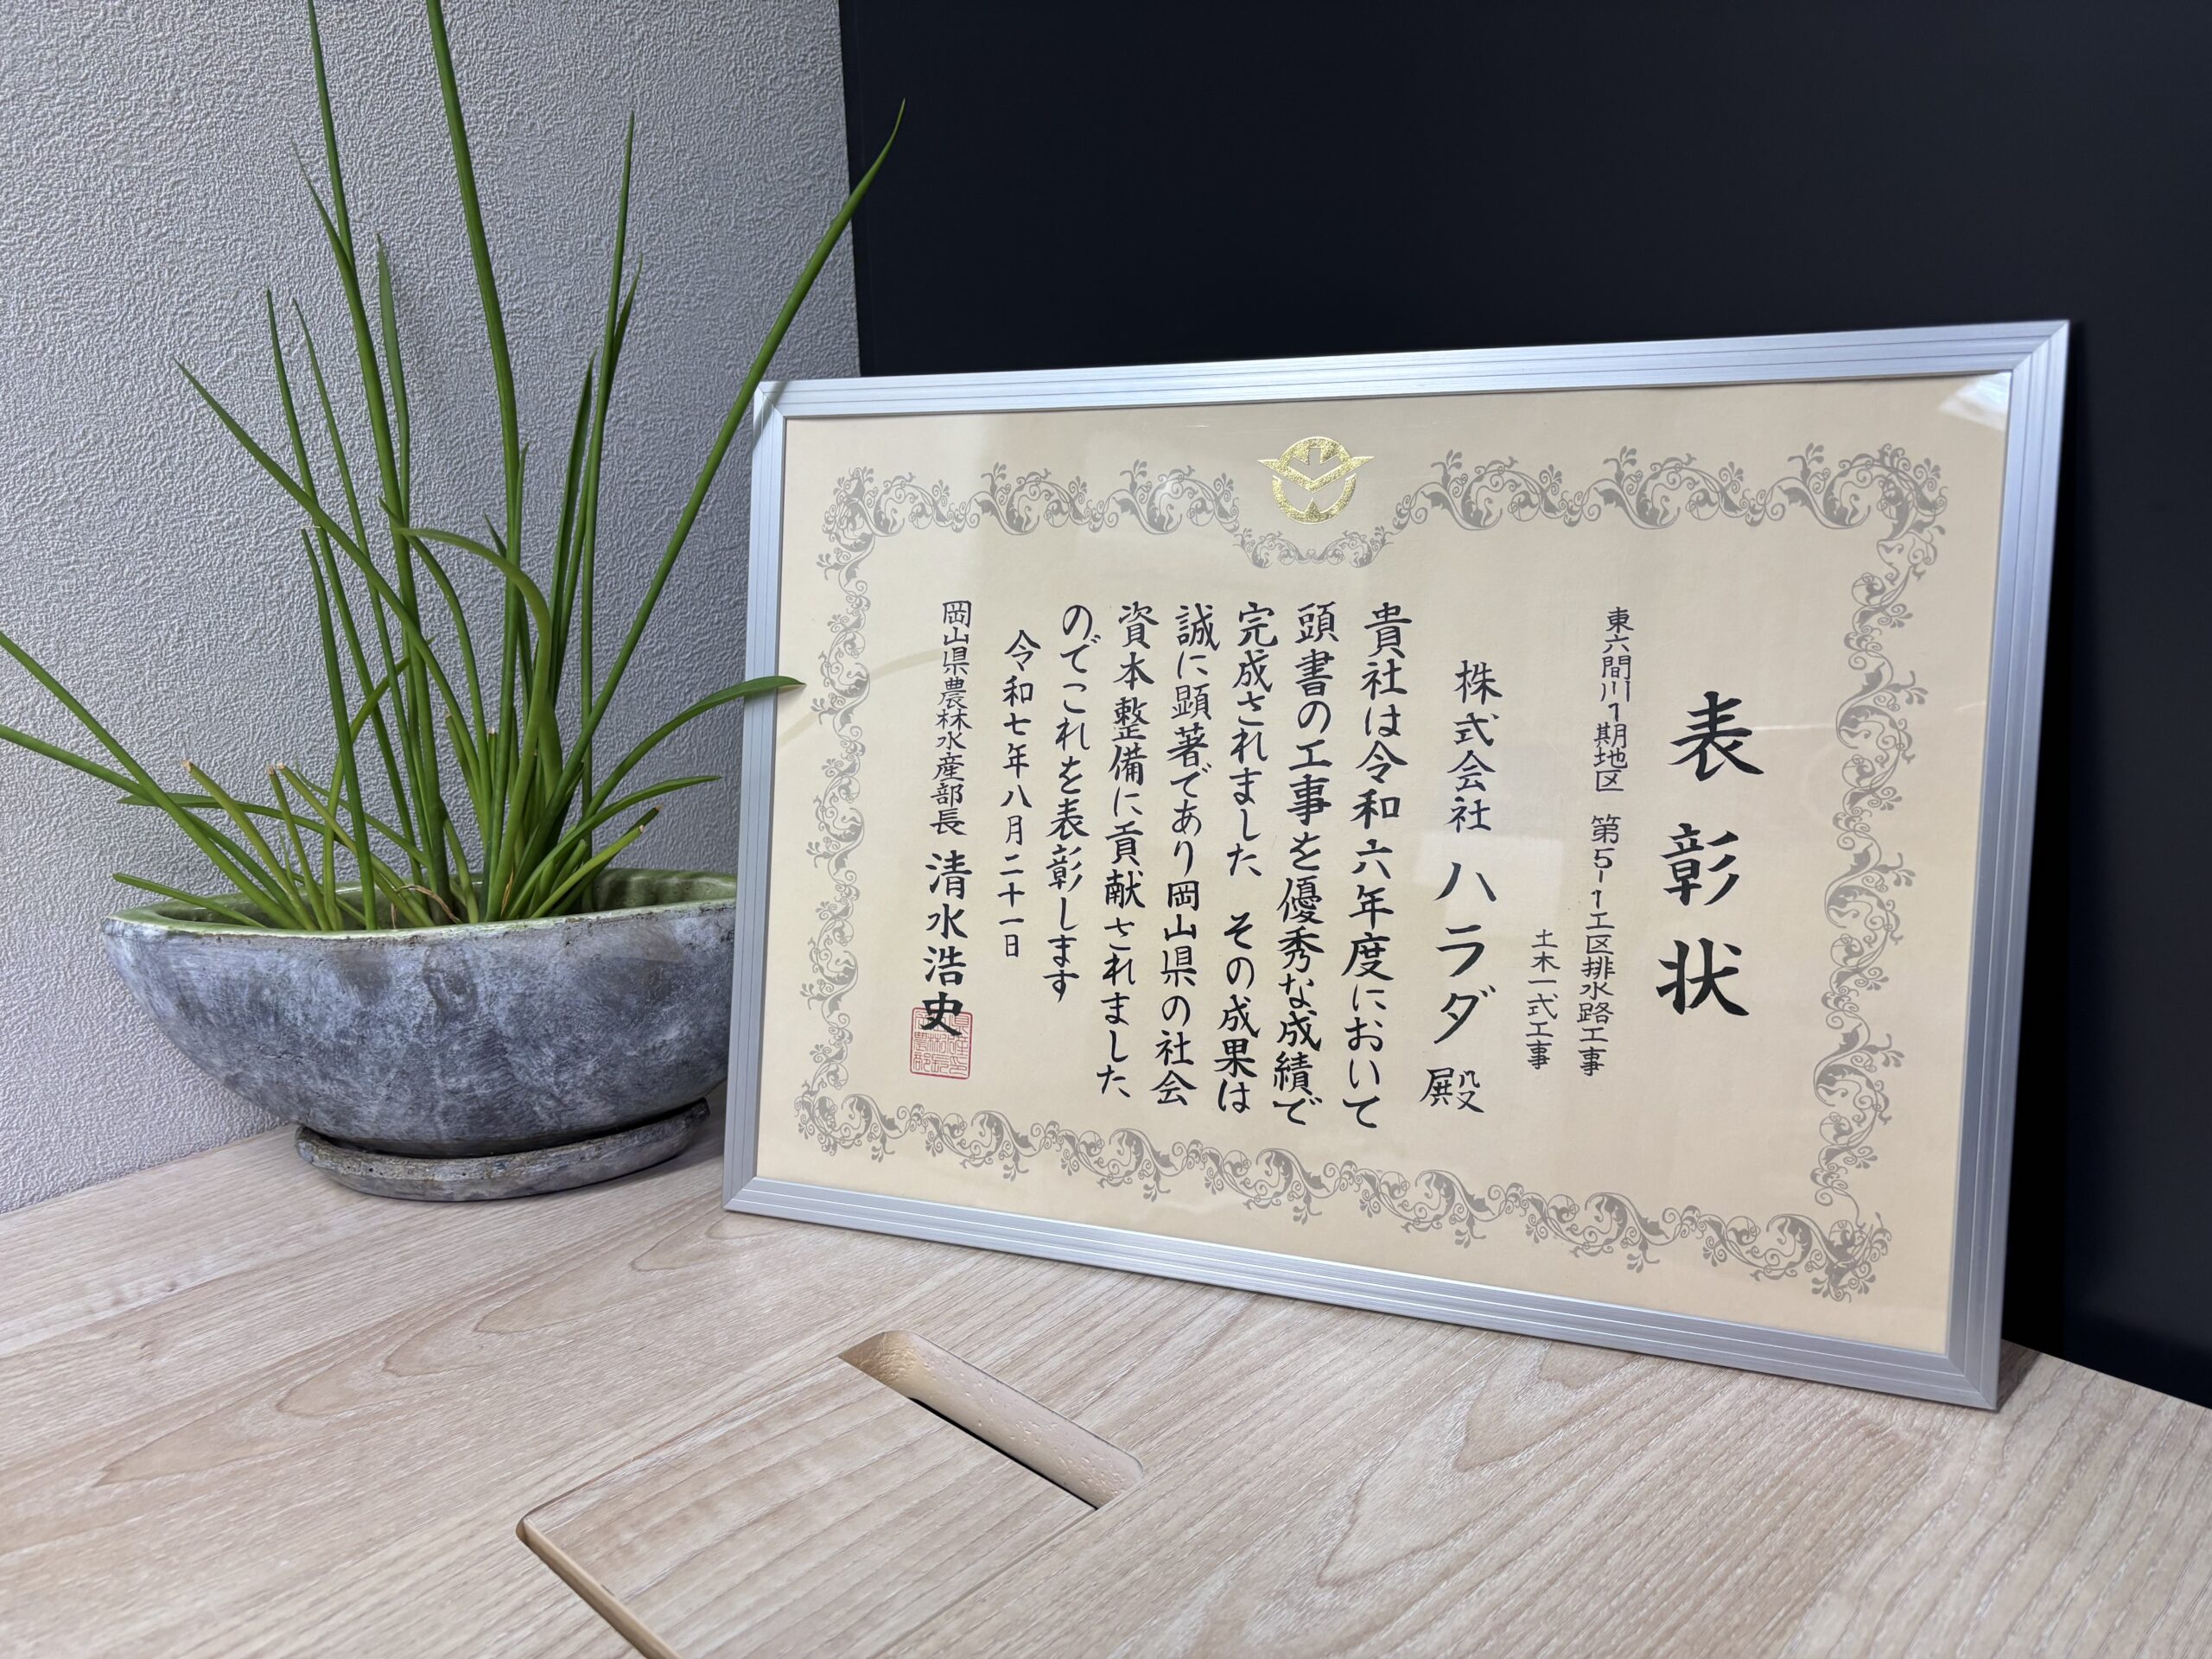 表彰状
東六間川1期地区 第5-1工区排水路工事
土木一式工事
株式会社 ハラダ 殿
貴社は令和六年度において
頭書の工事を優秀な成績で
完成されました その成果は
誠に顕著であり岡山県の社会
資本整備に貢献されました
のでこれを表彰します
令和七年八月二十一日
岡山県農林水産部長 清水浩史